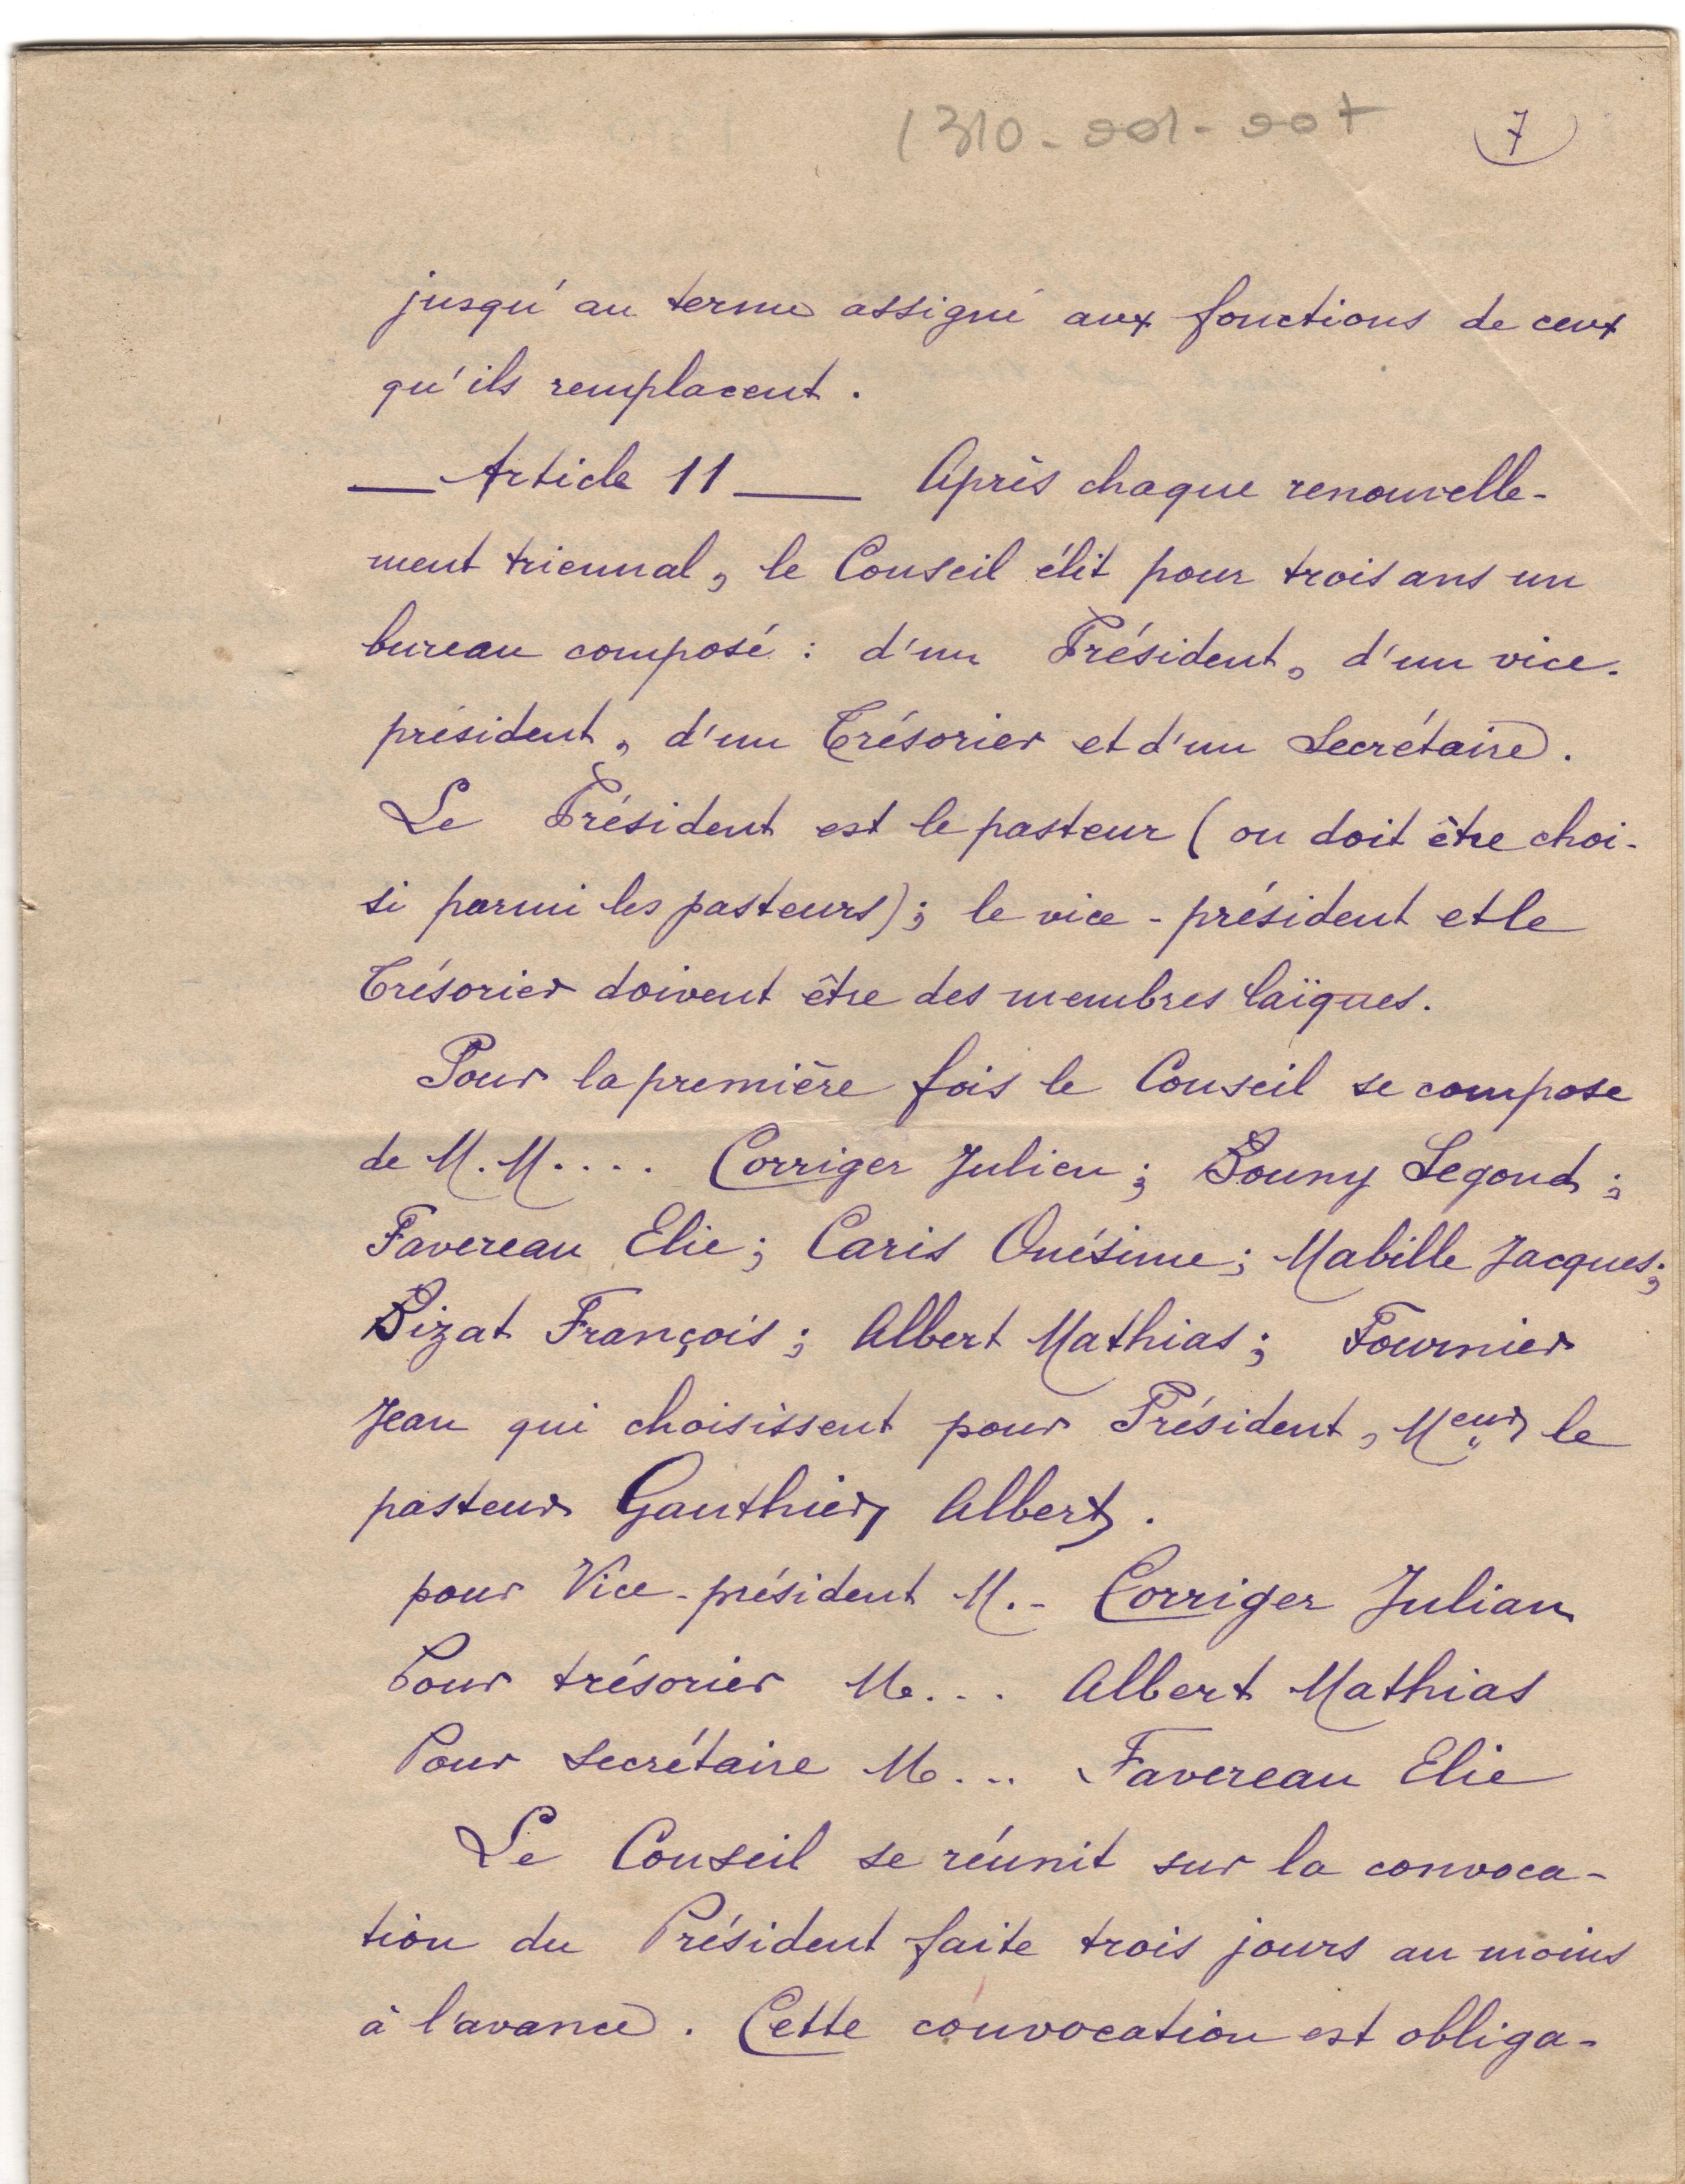 1310-001-007
7
jusqu'au terme assigné aux fonctions de ceux
qu'ils remplacent.
— Article 11 — Après chaque renouvelle-
ment triennal, le Conseil élit pour trois ans un
bureau composé : d'un Président, d'un vice-
président, d'un Trésorier et d'un Secrétaire.
Le Président est le pasteur (ou doit être choi-
si parmi les pasteurs); le vice-président et le
Trésorier doivent être des membres laïques.
Pour la première fois le Conseil se compose
de M.M.... Corriger Julien; Bouny Segond;
Favereau Elie; Caris Onésime; Mabille Jacques;
Bizat François; Albert Mathias; Fournier
Jean qui choisissent pour Président, Meur le
pasteur Gauthier Albert.
pour Vice-président M.- Corriger Julian
Pour trésorier M... Albert Mathias
Pour secrétaire M... Favereau Elie
Le Conseil se réunit sur la convoca-
tion du Président faite trois jours au moins
à l'avance. Cette convocation est obliga-